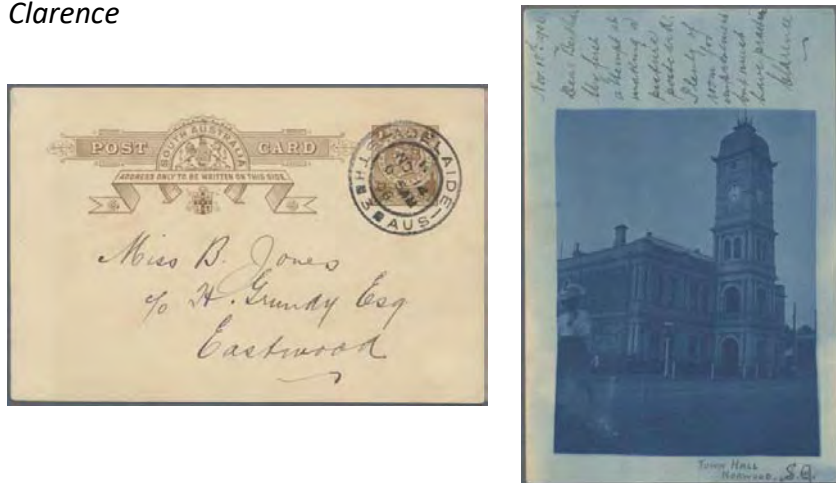 Clarence
POST CARD
SOUTH AUSTRALIA
ADDRESS ONLY TO BE WRITTEN ON THIS SIDE.
ADELAIDE
STH AUS
Miss B. Jones
c/o H. Grundy Esq
Eastwood
Dear Bertha
My first
attempt at
making a
picture
postcard.
Plenty of
room for
improvement
but must
have practice
Clarence
TOWN HALL
NORWOOD, S.A.